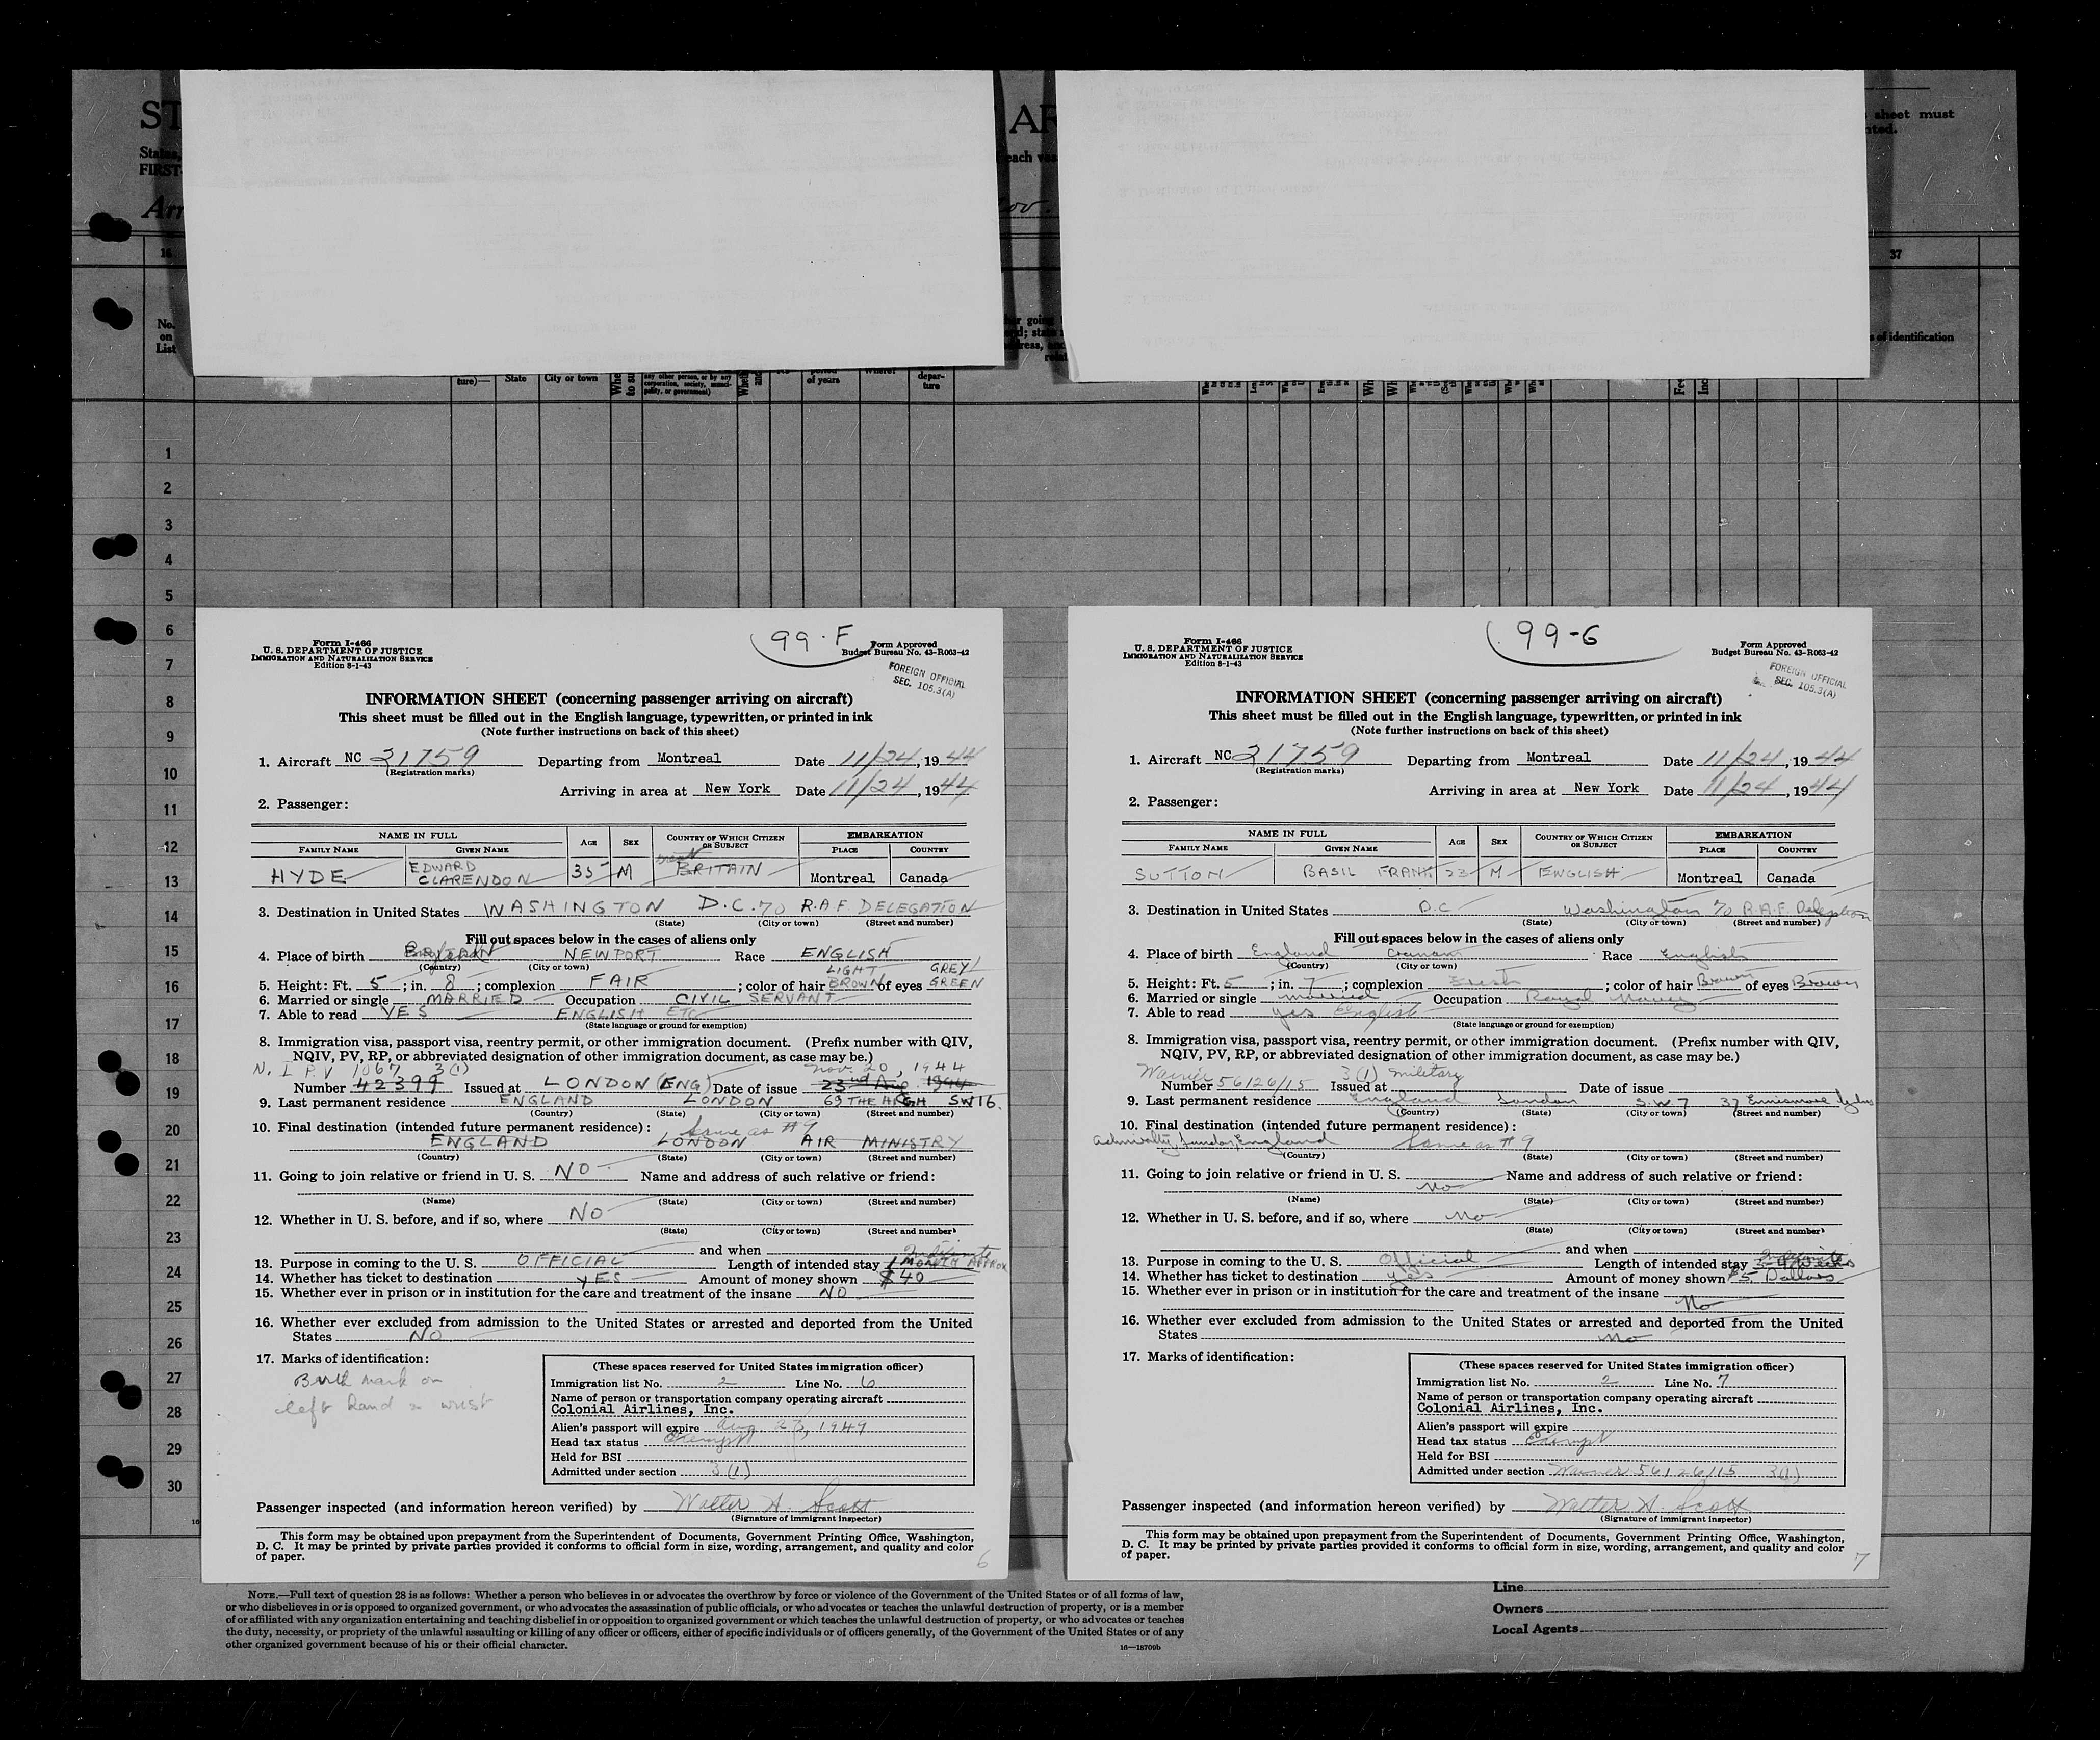 ST
AR
sheet must
States,
each ves
FIRST-
Arr
ov.
16
37
No.
on
List
s of identification
ture)—
State
City or town
any other person, or by any
corporation, society, munici-
pality, or government)
of years
depar-
ture
1
2
3
4
5
6
7
8
9
10
11
12
13
14
15
16
17
18
19
20
21
22
23
24
25
26
27
28
29
30
99-F
Form I-466
U. S. DEPARTMENT OF JUSTICE
IMMIGRATION AND NATURALIZATION SERVICE
Edition 8-1-43
Form Approved
Budget Bureau No. 43-R063-42
FOREIGN OFFICIAL
SEC. 105.3(A)
INFORMATION SHEET (concerning passenger arriving on aircraft)
This sheet must be filled out in the English language, typewritten, or printed in ink
(Note further instructions on back of this sheet)
1. Aircraft NC 21759 Departing from Montreal Date 11/24, 1944
(Registration marks)
Arriving in area at New York Date 11/24, 1944
2. Passenger:
NAME IN FULL AGE SEX COUNTRY OF WHICH CITIZEN OR SUBJECT EMBARKATION
FAMILY NAME GIVEN NAME PLACE COUNTRY
HYDE EDWARD CLARENDON 35 M Great BRITAIN Montreal Canada
3. Destination in United States WASHINGTON D.C. % R.A.F. DELEGATION
(State) (City or town) (Street and number)
Fill out spaces below in the cases of aliens only
4. Place of birth NEWPORT Race ENGLISH
(Country) (City or town)
LIGHT GREY
5. Height: Ft. 5; in. 8; complexion FAIR; color of hair BROWN of eyes GREEN
6. Married or single MARRIED Occupation CIVIL SERVANT
7. Able to read YES ENGLISH ETC
(State language or ground for exemption)
8. Immigration visa, passport visa, reentry permit, or other immigration document. (Prefix number with QIV,
NQIV, PV, RP, or abbreviated designation of other immigration document, as case may be.)
N. I P.V 1067 3(1) Nov. 20, 1944
Number 42399 Issued at LONDON (ENG) Date of issue 23rd Aug 1944
9. Last permanent residence ENGLAND LONDON 63 THE HIGH SW16.
(Country) (State) (City or town) (Street and number)
10. Final destination (intended future permanent residence): Same as #9
ENGLAND LONDON AIR MINISTRY
(Country) (State) (City or town) (Street and number)
11. Going to join relative or friend in U. S. NO Name and address of such relative or friend:
(Name) (State) (City or town) (Street and number)
12. Whether in U. S. before, and if so, where NO
(State) (City or town) (Street and number)
and when
Indefinite
13. Purpose in coming to the U. S. OFFICIAL Length of intended stay 1 MONTH APPROX
14. Whether has ticket to destination YES Amount of money shown $40
15. Whether ever in prison or in institution for the care and treatment of the insane NO
16. Whether ever excluded from admission to the United States or arrested and deported from the United
States NO
17. Marks of identification:
Birth mark on
left hand & wrist
(These spaces reserved for United States immigration officer)
Immigration list No. 2 Line No. 6
Name of person or transportation company operating aircraft
Colonial Airlines, Inc.
Alien's passport will expire Aug. 23, 1949
Head tax status Exempt
Held for BSI
Admitted under section 3(1)
Passenger inspected (and information hereon verified) by Walter H. Scott
(Signature of Immigrant Inspector)
This form may be obtained upon prepayment from the Superintendent of Documents, Government Printing Office, Washington,
D. C. It may be printed by private parties provided it conforms to official form in size, wording, arrangement, and quality and color
of paper.
6
99-G
Form I-466
U. S. DEPARTMENT OF JUSTICE
IMMIGRATION AND NATURALIZATION SERVICE
Edition 8-1-43
Form Approved
Budget Bureau No. 43-R063-42
FOREIGN OFFICIAL
SEC. 105.3(A)
INFORMATION SHEET (concerning passenger arriving on aircraft)
This sheet must be filled out in the English language, typewritten, or printed in ink
(Note further instructions on back of this sheet)
1. Aircraft NC 21759 Departing from Montreal Date 11/24, 1944
(Registration marks)
Arriving in area at New York Date 11/24, 1944
2. Passenger:
NAME IN FULL AGE SEX COUNTRY OF WHICH CITIZEN OR SUBJECT EMBARKATION
FAMILY NAME GIVEN NAME PLACE COUNTRY
SUTTON BASIL FRANK 23 M ENGLISH Montreal Canada
3. Destination in United States D.C. Washington % R.A.F. Delegation
(State) (City or town) (Street and number)
Fill out spaces below in the cases of aliens only
4. Place of birth England Race English
(Country) (City or town)
5. Height: Ft. 5; in. 7; complexion Fresh; color of hair Brown of eyes Brown
6. Married or single married Occupation Royal Navy
7. Able to read yes English
(State language or ground for exemption)
8. Immigration visa, passport visa, reentry permit, or other immigration document. (Prefix number with QIV,
NQIV, PV, RP, or abbreviated designation of other immigration document, as case may be.)
Waiver 3(1) military
Number 56126/15 Issued at Date of issue
9. Last permanent residence England London S.W.7 37 Ennismore Gdns
(Country) (State) (City or town) (Street and number)
10. Final destination (intended future permanent residence):
Admiralty, London, England Same as #9
(Country) (State) (City or town) (Street and number)
11. Going to join relative or friend in U. S. No Name and address of such relative or friend:
(Name) (State) (City or town) (Street and number)
12. Whether in U. S. before, and if so, where No
(State) (City or town) (Street and number)
and when
Indefinite
13. Purpose in coming to the U. S. Official Length of intended stay 3-4 Weeks
14. Whether has ticket to destination yes Amount of money shown $5 Dollars
15. Whether ever in prison or in institution for the care and treatment of the insane No
16. Whether ever excluded from admission to the United States or arrested and deported from the United
States No
17. Marks of identification:
(These spaces reserved for United States immigration officer)
Immigration list No. 2 Line No. 7
Name of person or transportation company operating aircraft
Colonial Airlines, Inc.
Alien's passport will expire
Head tax status Exempt
Held for BSI
Admitted under section Waiver 56126/15 3(1)
Passenger inspected (and information hereon verified) by Walter H. Scott
(Signature of Immigrant Inspector)
This form may be obtained upon prepayment from the Superintendent of Documents, Government Printing Office, Washington,
D. C. It may be printed by private parties provided it conforms to official form in size, wording, arrangement, and quality and color
of paper.
7
NOTE.—Full text of question 28 is as follows: Whether a person who believes in or advocates the overthrow by force or violence of the Government of the United States or of all forms of law,
or who disbelieves in or is opposed to organized government, or who advocates the assassination of public officials, or who advocates or teaches the unlawful destruction of property, or is a member
of or affiliated with any organization entertaining and teaching disbelief in or opposition to organized government or which teaches the unlawful destruction of property, or who advocates or teaches
the duty, necessity, or propriety of the unlawful assaulting or killing of any officer or officers, either of specific individuals or of officers generally, of the Government of the United States or of any
other organized government because of his or their official character.
16—18709b
Line
Owners
Local Agents